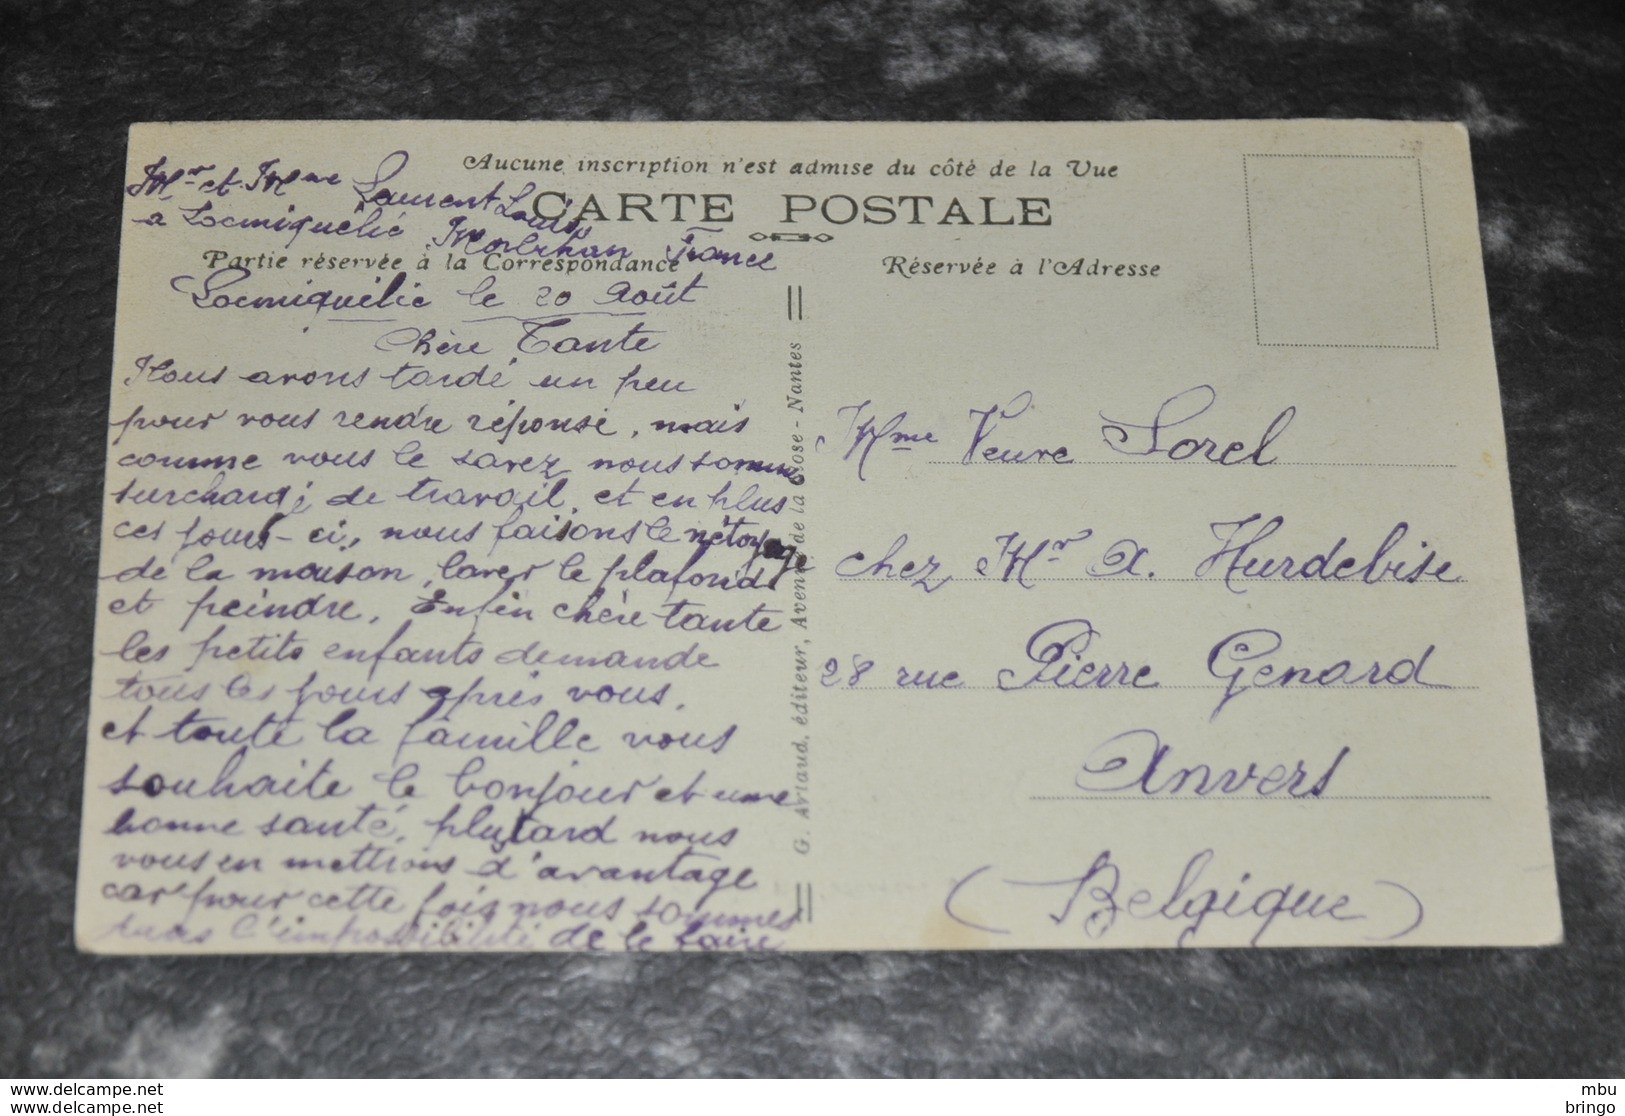 Aucune inscription n'est admise du côté de la Vue
CARTE POSTALE
Partie réservée à la Correspondance
Réservée à l'Adresse
Mr et Mme Laurent Louis
à Locmiquélic Morbihan France
Locmiquélic le 20 Août
Chère Tante
Nous avons tardé un peu
pour vous rendre réponse, mais
comme vous le savez nous somme
surchargé de travail, et en plus
ces jours-ci, nous faisons le nétoyage
de la maison, laver le plafond
et peindre. Enfin chère tante
les petits enfants demande
tous les jours après vous,
et toute la famille vous
souhaite le bonjour et une
bonne santé, plutard nous
vous en mettrons d'avantage
car pour cette fois nous sommes
dans l'impossibilité de le faire
G. Artaud, éditeur, Avenue de la Close - Nantes
Mme Veuve Sorel
chez Mr A. Hurdebise
28 rue Pierre Genard
Anvers
(Belgique)
www.delcampe.net
www.delcampe.net
mbu
bringo